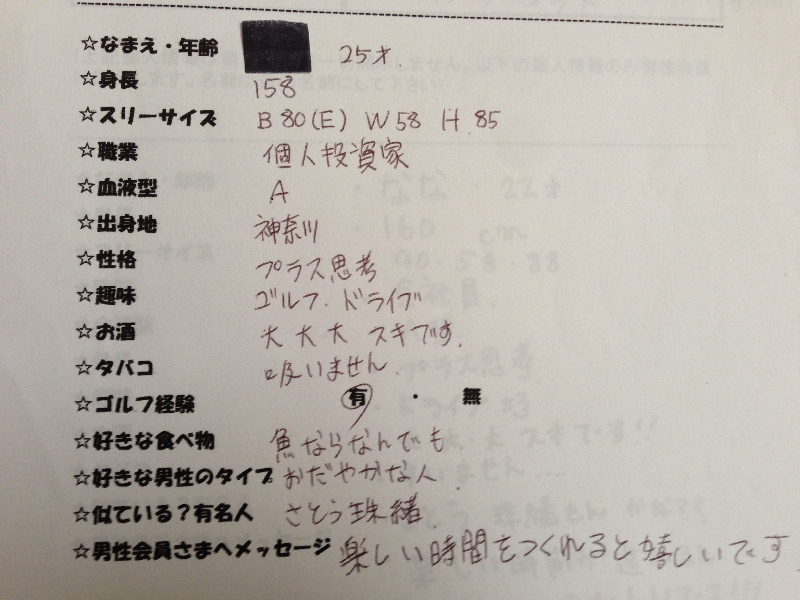 ☆なまえ・年齢 25才.
☆身長 158
☆スリーサイズ B 80(E) W 58 H 85
☆職業 個人投資家
☆血液型 A
☆出身地 神奈川
☆性格 プラス思考
☆趣味 ゴルフ. ドライブ
☆お酒 大大大 スキです.
☆タバコ 吸いません.
☆ゴルフ経験 有 ・ 無
☆好きな食べ物 魚ならなんでも.
☆好きな男性のタイプ おだやかな人.
☆似ている?有名人 さとう珠緒.
☆男性会員さまへメッセージ 楽しい時間をつくれると嬉しいです